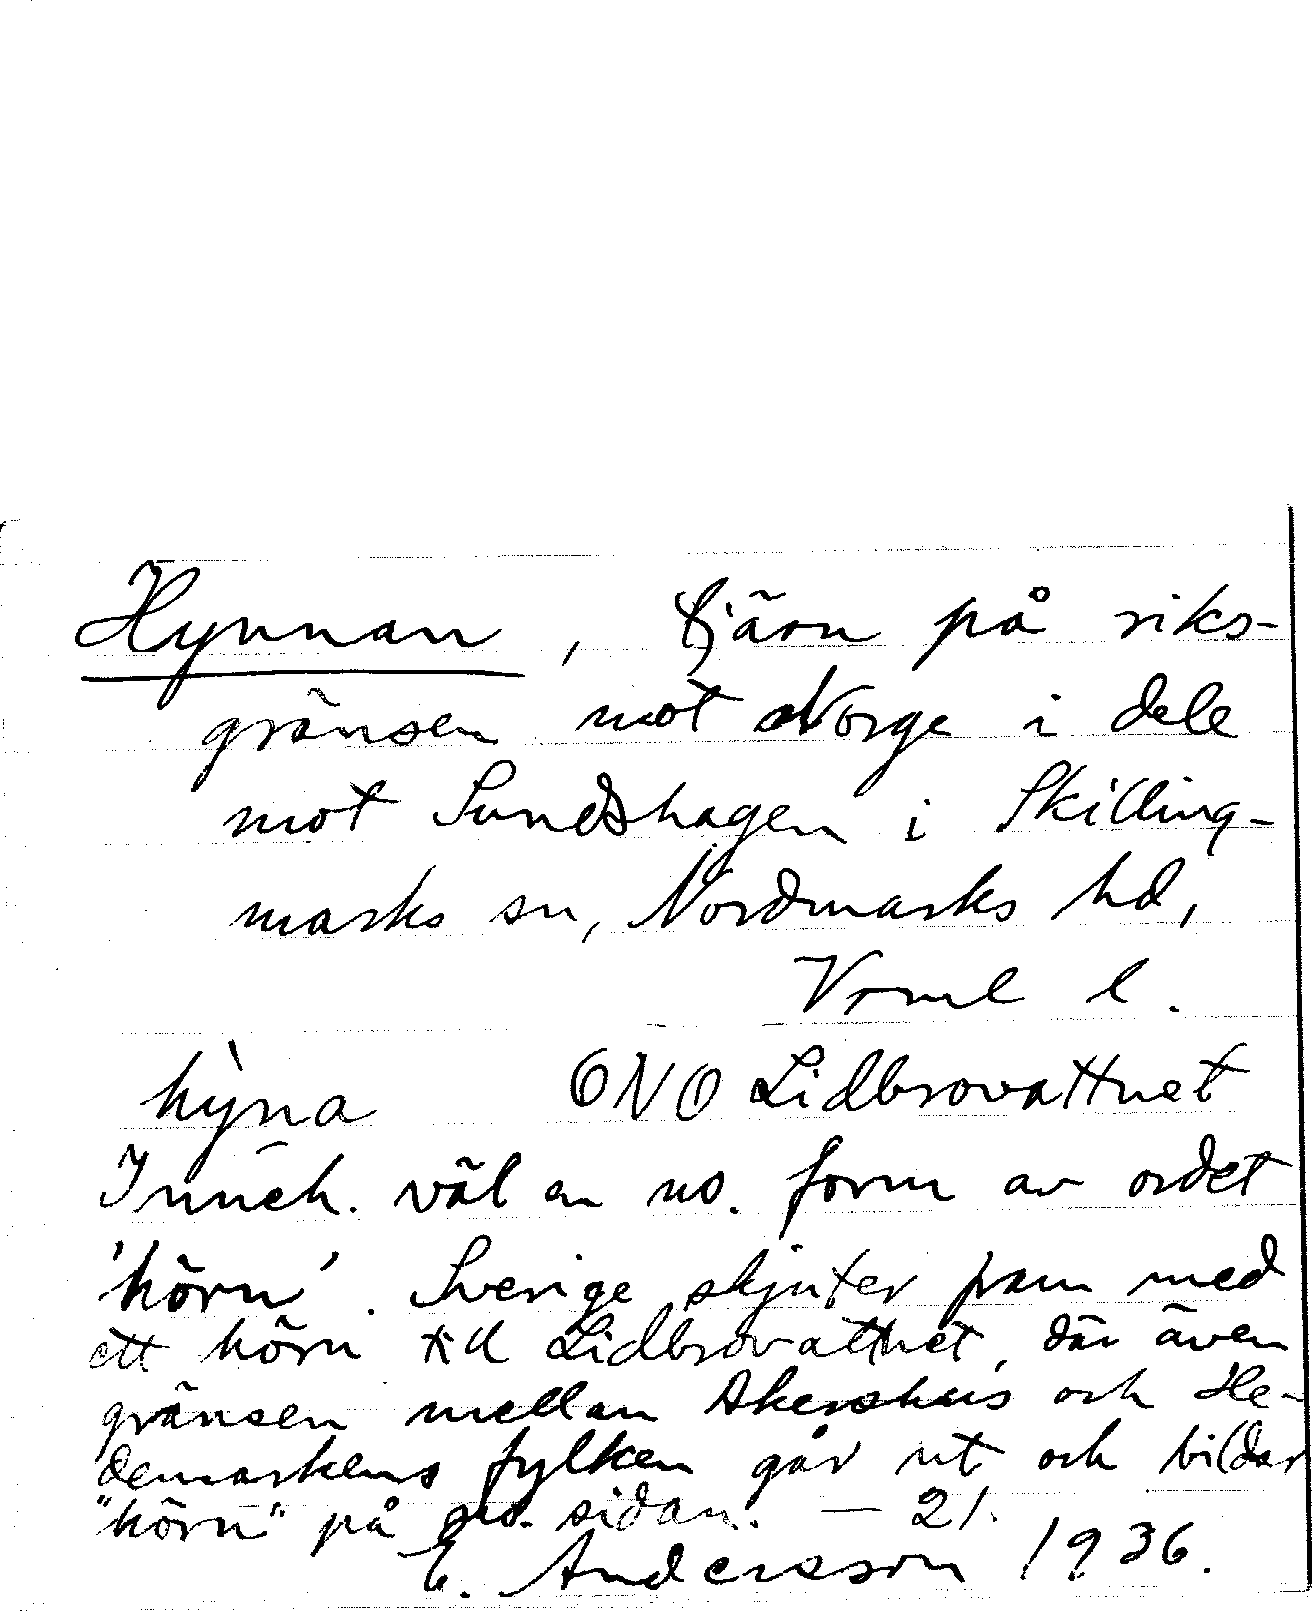 Hynnan, tjärn på riks-
gränsen mot Norge i dele
mot Sundshagen i Skilling-
marks sn, Nordmarks hd,
Vrml l.
hỳna ONO Lidbrovattnet
Inneh. väl en no. form av ordet
'hörn'. Sverige skjuter fram med
ett hörn till Lidbrovattnet, där även
gränsen mellan Akershus och He-
demarkens fylken går ut och bildar
"hörn" på no. sidan. — 21.
E. Andersson 1936.